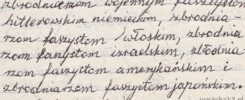 zbrodniczem wojennym faszystom
hitlerowskim niemieckim, zbrodnia-
rzom faszystom włoskim, zbrodnia
rzom fanystom izraelskim, złodnia
rzom faszystom amerykańskim i
zbrodniarzom faszystom japońskim.